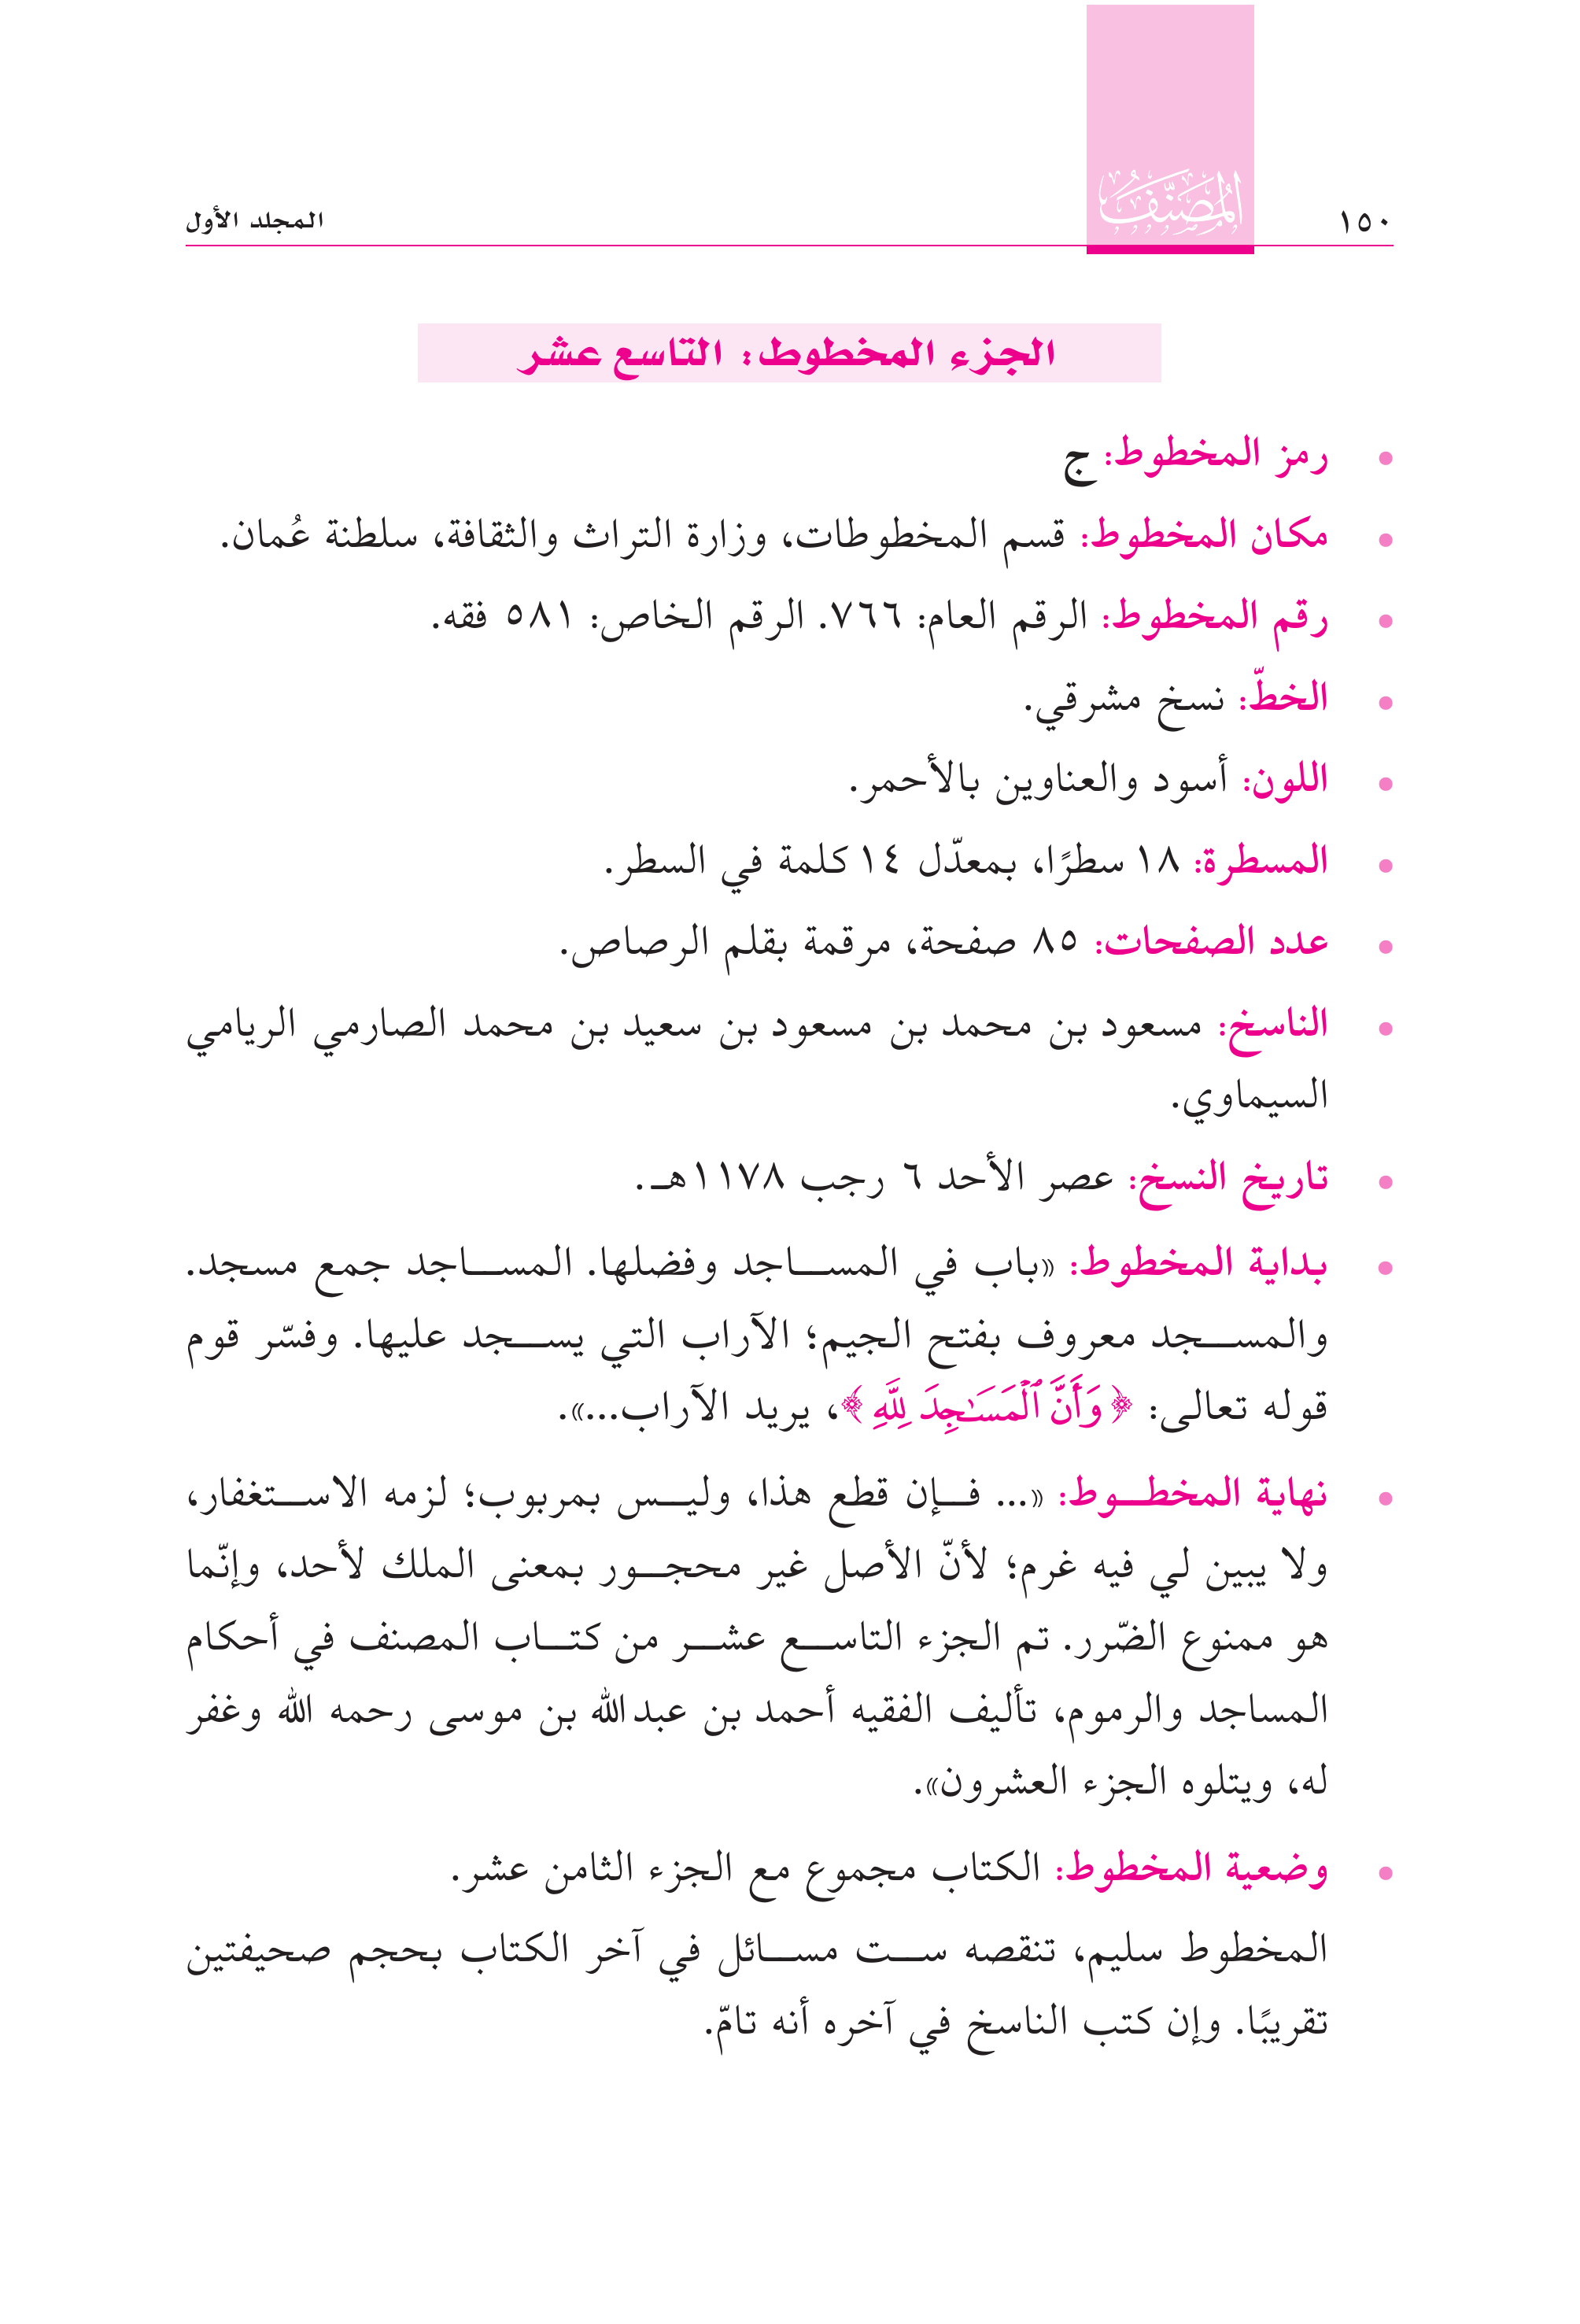 ١٥٠
المُصَنَّفُ
المجلد الأول
الجزء المخطوط: التاسع عشر
• رمز المخطوط: ج
• مكان المخطوط: قسم المخطوطات، وزارة التراث والثقافة، سلطنة عُمان.
• رقم المخطوط: الرقم العام: ٧٦٦. الرقم الخاص: ٥٨١ فقه.
• الخطّ: نسخ مشرقي.
• اللون: أسود والعناوين بالأحمر.
• المسطرة: ١٨ سطرًا، بمعدّل ١٤ كلمة في السطر.
• عدد الصفحات: ٨٥ صفحة، مرقمة بقلم الرصاص.
• الناسخ: مسعود بن محمد بن مسعود بن سعيد بن محمد الصارمي الريامي
السيماوي.
• تاريخ النسخ: عصر الأحد ٦ رجب ١١٧٨هـ.
• بداية المخطوط: «باب في المساجد وفضلها. المساجد جمع مسجد.
والمسجد معروف بفتح الجيم؛ الآراب التي يسجد عليها. وفسّر قوم
قوله تعالى: ﴿وَأَنَّ ٱلْمَسَـٰجِدَ لِلَّهِ﴾، يريد الآراب...».
• نهاية المخطوط: «... فإن قطع هذا، وليس بمربوب؛ لزمه الاستغفار،
ولا يبين لي فيه غرم؛ لأنّ الأصل غير محجور بمعنى الملك لأحد، وإنّما
هو ممنوع الضّرر. تم الجزء التاسع عشر من كتاب المصنف في أحكام
المساجد والرموم، تأليف الفقيه أحمد بن عبدالله بن موسى رحمه الله وغفر
له، ويتلوه الجزء العشرون».
• وضعية المخطوط: الكتاب مجموع مع الجزء الثامن عشر.
المخطوط سليم، تنقصه ست مسائل في آخر الكتاب بحجم صحيفتين
تقريبًا. وإن كتب الناسخ في آخره أنه تامّ.